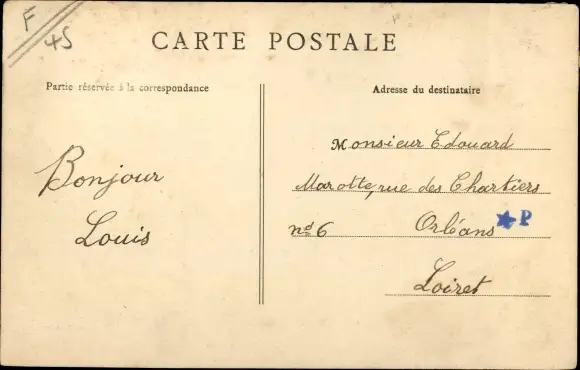 F
45
CARTE POSTALE
Partie réservée à la correspondance
Adresse du destinataire
Bonjour
Louis
Monsieur Edouard
Marotte, rue des Chartiers
nd 6 Orléans ★ P
Loiret